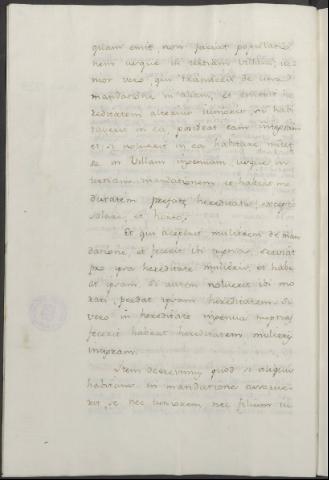 quam emit, non faciat populatio
nem usque in tertiam Villam, iu
nior vero, qui transierit de una
mandatione in aliam, et emerit he
reditatem alterius iunioris, si habi
taverit in ea, possideat eam integram
et si noluerit in ea habitare mutet
se in Villam ingenuam usque in
tertiam mandationem, et habeat me
dietatem prefate hereditatis, excepto
solare, et horto.
Et qui acceperit mulierem de man
datione, et fecerit ibi nuptias, serviat
pro ipsa hereditate mulieris, et habe
at ipsam. si autem noluerit ibi mo
rari, perdat ipsam hereditatem. si
vero in hereditate ingenua nuptias
fecerit habeat hereditatem mulieris
integram.
Item decrevimus quod si aliquis
habitans in mandatione asserue
rit, se nec iuniorem, nec filium iu